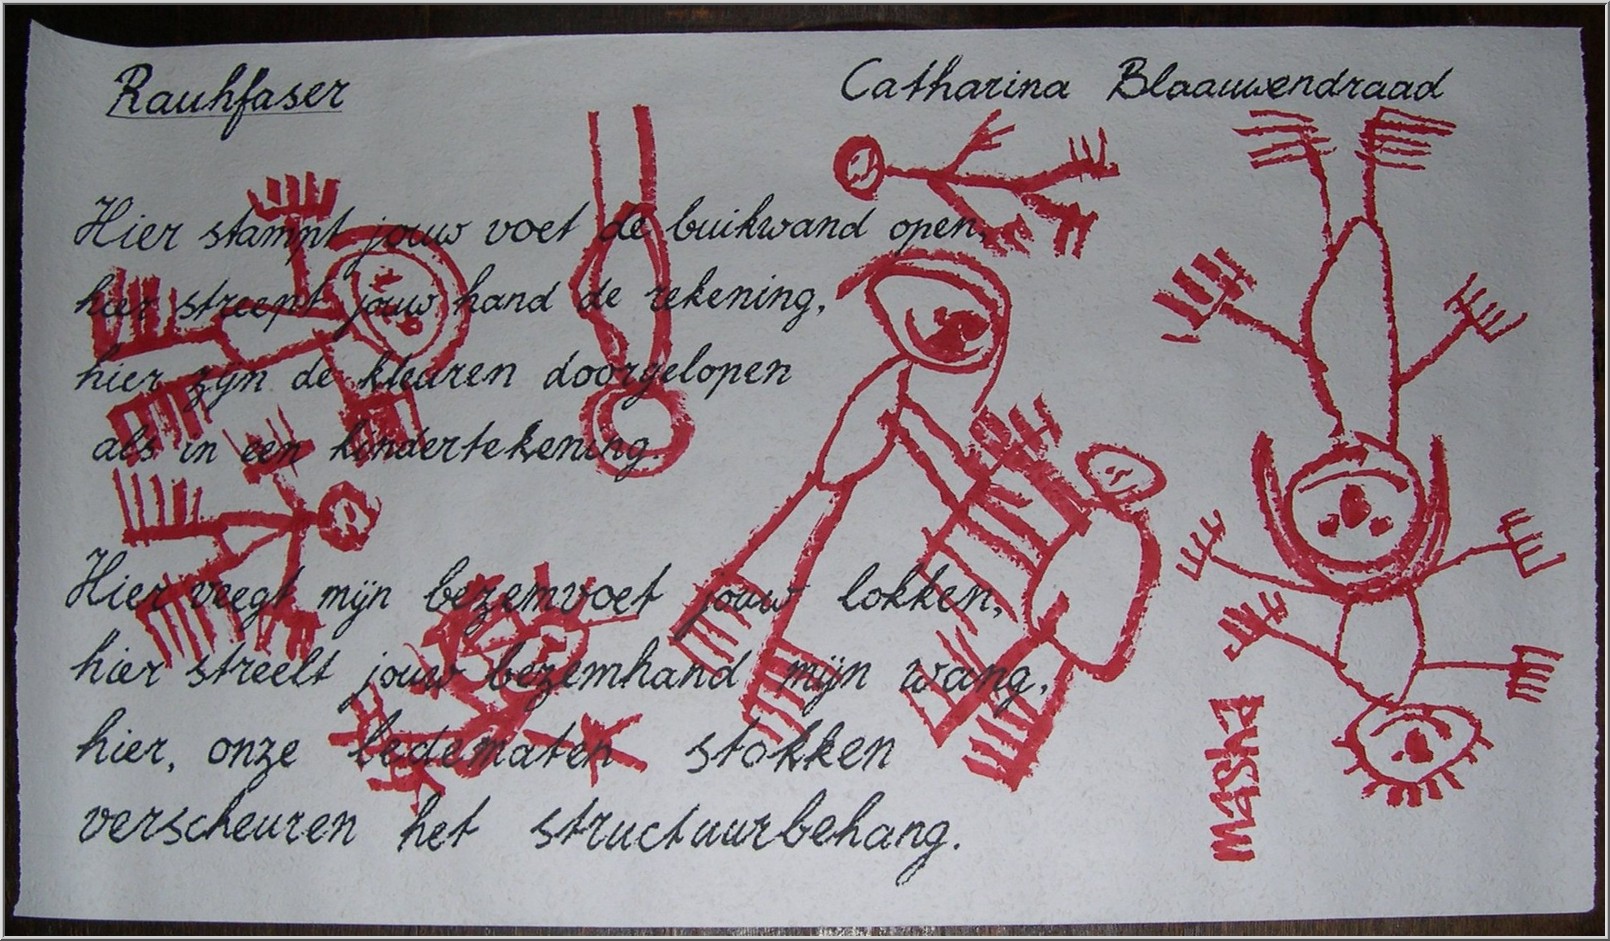 Rauhfaser
Catharina Blaauwendraad
Hier stampt jouw voet de buikwand open,
hier streept jouw hand de rekening,
hier zijn de kleuren doorgelopen
als in een kindertekening.
Hier veegt mijn bezemvoet jouw lokken,
hier streelt jouw bezemhand mijn wang,
hier, onze ledematen stokken
verscheuren het structuurbehang.
MASHA